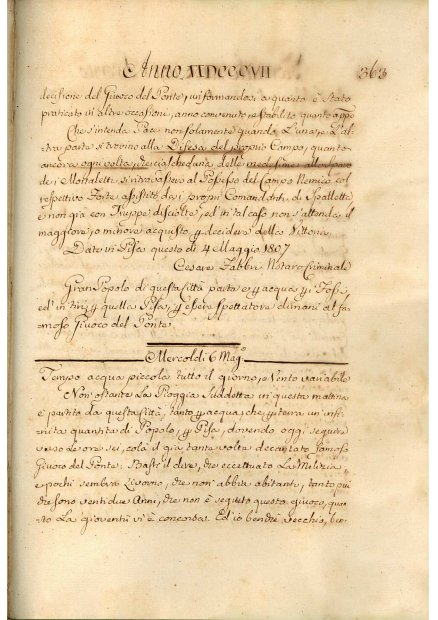 Anno MDCCCVII 363
decisione del Giuoco del Ponte, uniformandosi a quanto è stato
praticato in altre occasioni, anno convenuto, e stabilito quanto appo
Che s'intenda Pace non solamente quando l'una, e l'al
tra parte si trovino alla Difesa del proprio Campo, quanto
ancora ogni volta, che ciascheduna delle medesime allo sparo
de i Mortaletti, si ritrovassero al Possesso del Campo Nemico col
respettivo Forte assistite da i propri Comandanti di Spalletta
e non già con Truppe disciolte, ed in tal caso non s'attenda il
maggiore, o minore acquisto p decidere della Vittoria.
Dato in Pisa questo dì 4 Maggio 1807
Cesare Fabbri Notaro Criminale
Gran Popolo di questa Città parte p acqua p i Fossi,
ed in tiri p quella Pisa, p essere spettatore dimani al fa
moso Giuoco del Ponte
Mercoldì 6 Magº
Tempo acqua piccola tutto il giorno, e Vento variabile
Non ostante La Pioggia Suddetta in questa mattina
è partito da questa Città, tanto p acqua, che p terra un'infi
nita quantità di Popolo, p Pisa, dovendo oggi seguire
verso le ore sei, colà il già tante volte decantato famoso
Giuoco del Ponte. Basti il dire, che eccettuato La Milizia
e pochi sembra Livorno, che non abbia abitanti, tanto più
che sono ventidue Anni, che non è seguito questo giuoco, quan
to La gioventù vi è concorsa. Ed io benchè vecchio, ben